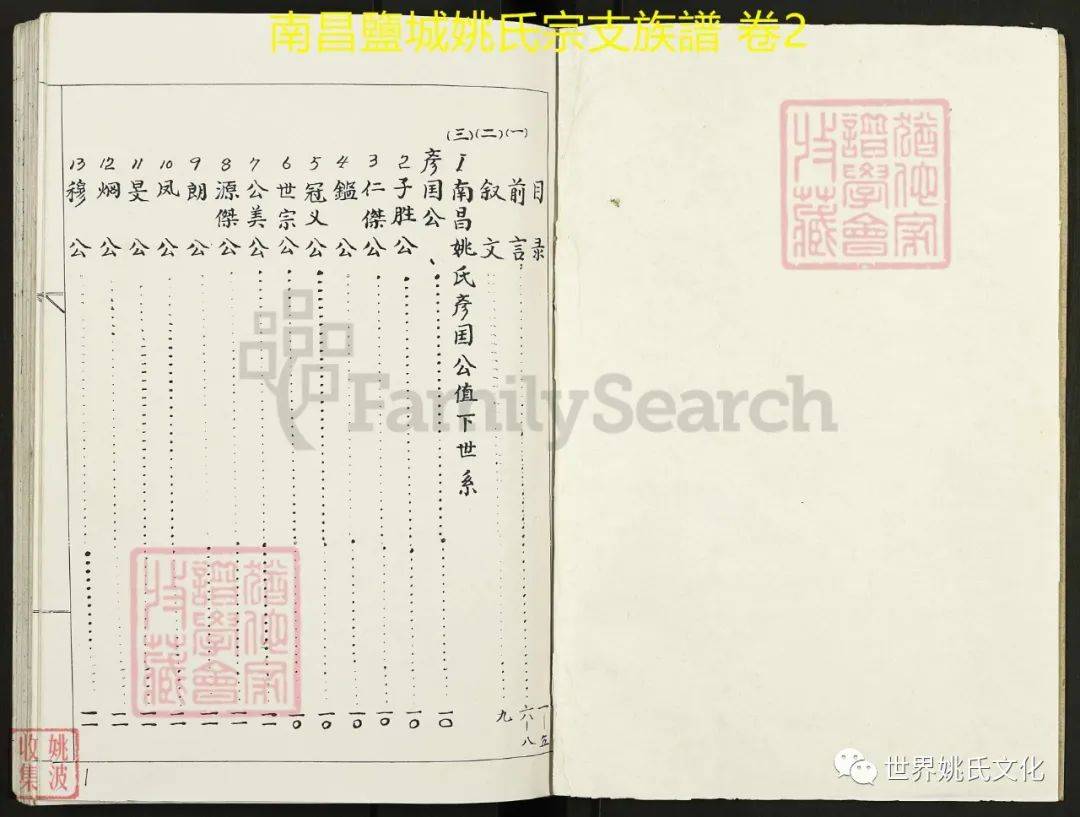 南昌鹽城姚氏宗支族譜 卷2
目录
(一) 前言 一-五
(二) 叙文 六-八
(三) 1南昌姚氏彦囯公值下世系 九
彦囯公 一〇
2 子胜公 一〇
3 仁傑公 一〇
4 鑑公 一〇
5 冠义公 一〇
6 世宗公 一〇
7 公美公 一一
8 源傑公 一一
9 朗公 一一
10 凤公 一一
11 旻公 一一
12 炯公 一一
13 穆公 一一
1
猶他家
譜學會
收藏
猶他家
譜學會
收藏
姚波
收集
FamilySearch
世界姚氏文化